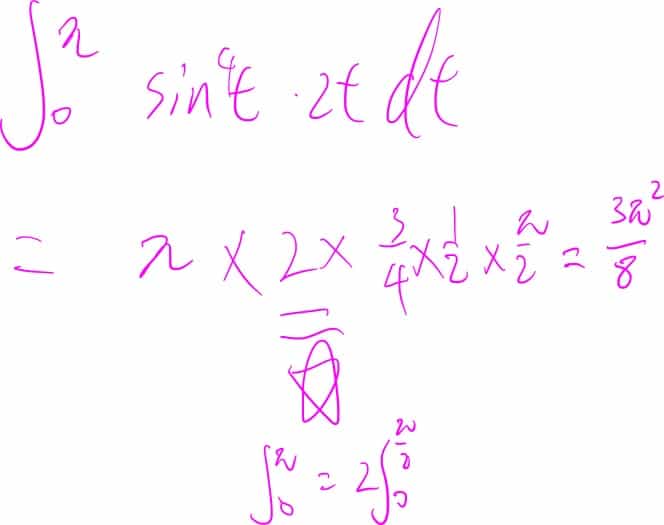 ∫₀^π sin⁴t · 2t dt
= π × 2 × 3/4 × 1/2 × π/2 = 3π²/8
∫₀^π = 2∫₀^(π/2)